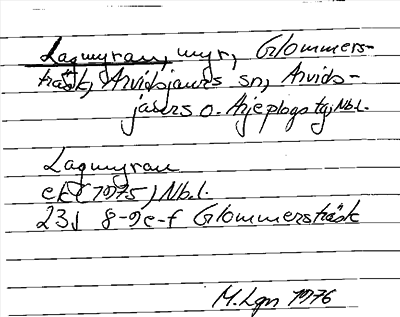 Lagmyran, myr, Glommers-
träsk, Arvidsjaurs sn, Arvids-
jaurs o. Arjeplogs tg, Nb.l.
Lagmyran
ek (1975) Nb.l.
23J 8-9e-f Glommersträsk
M. Lgn 1976